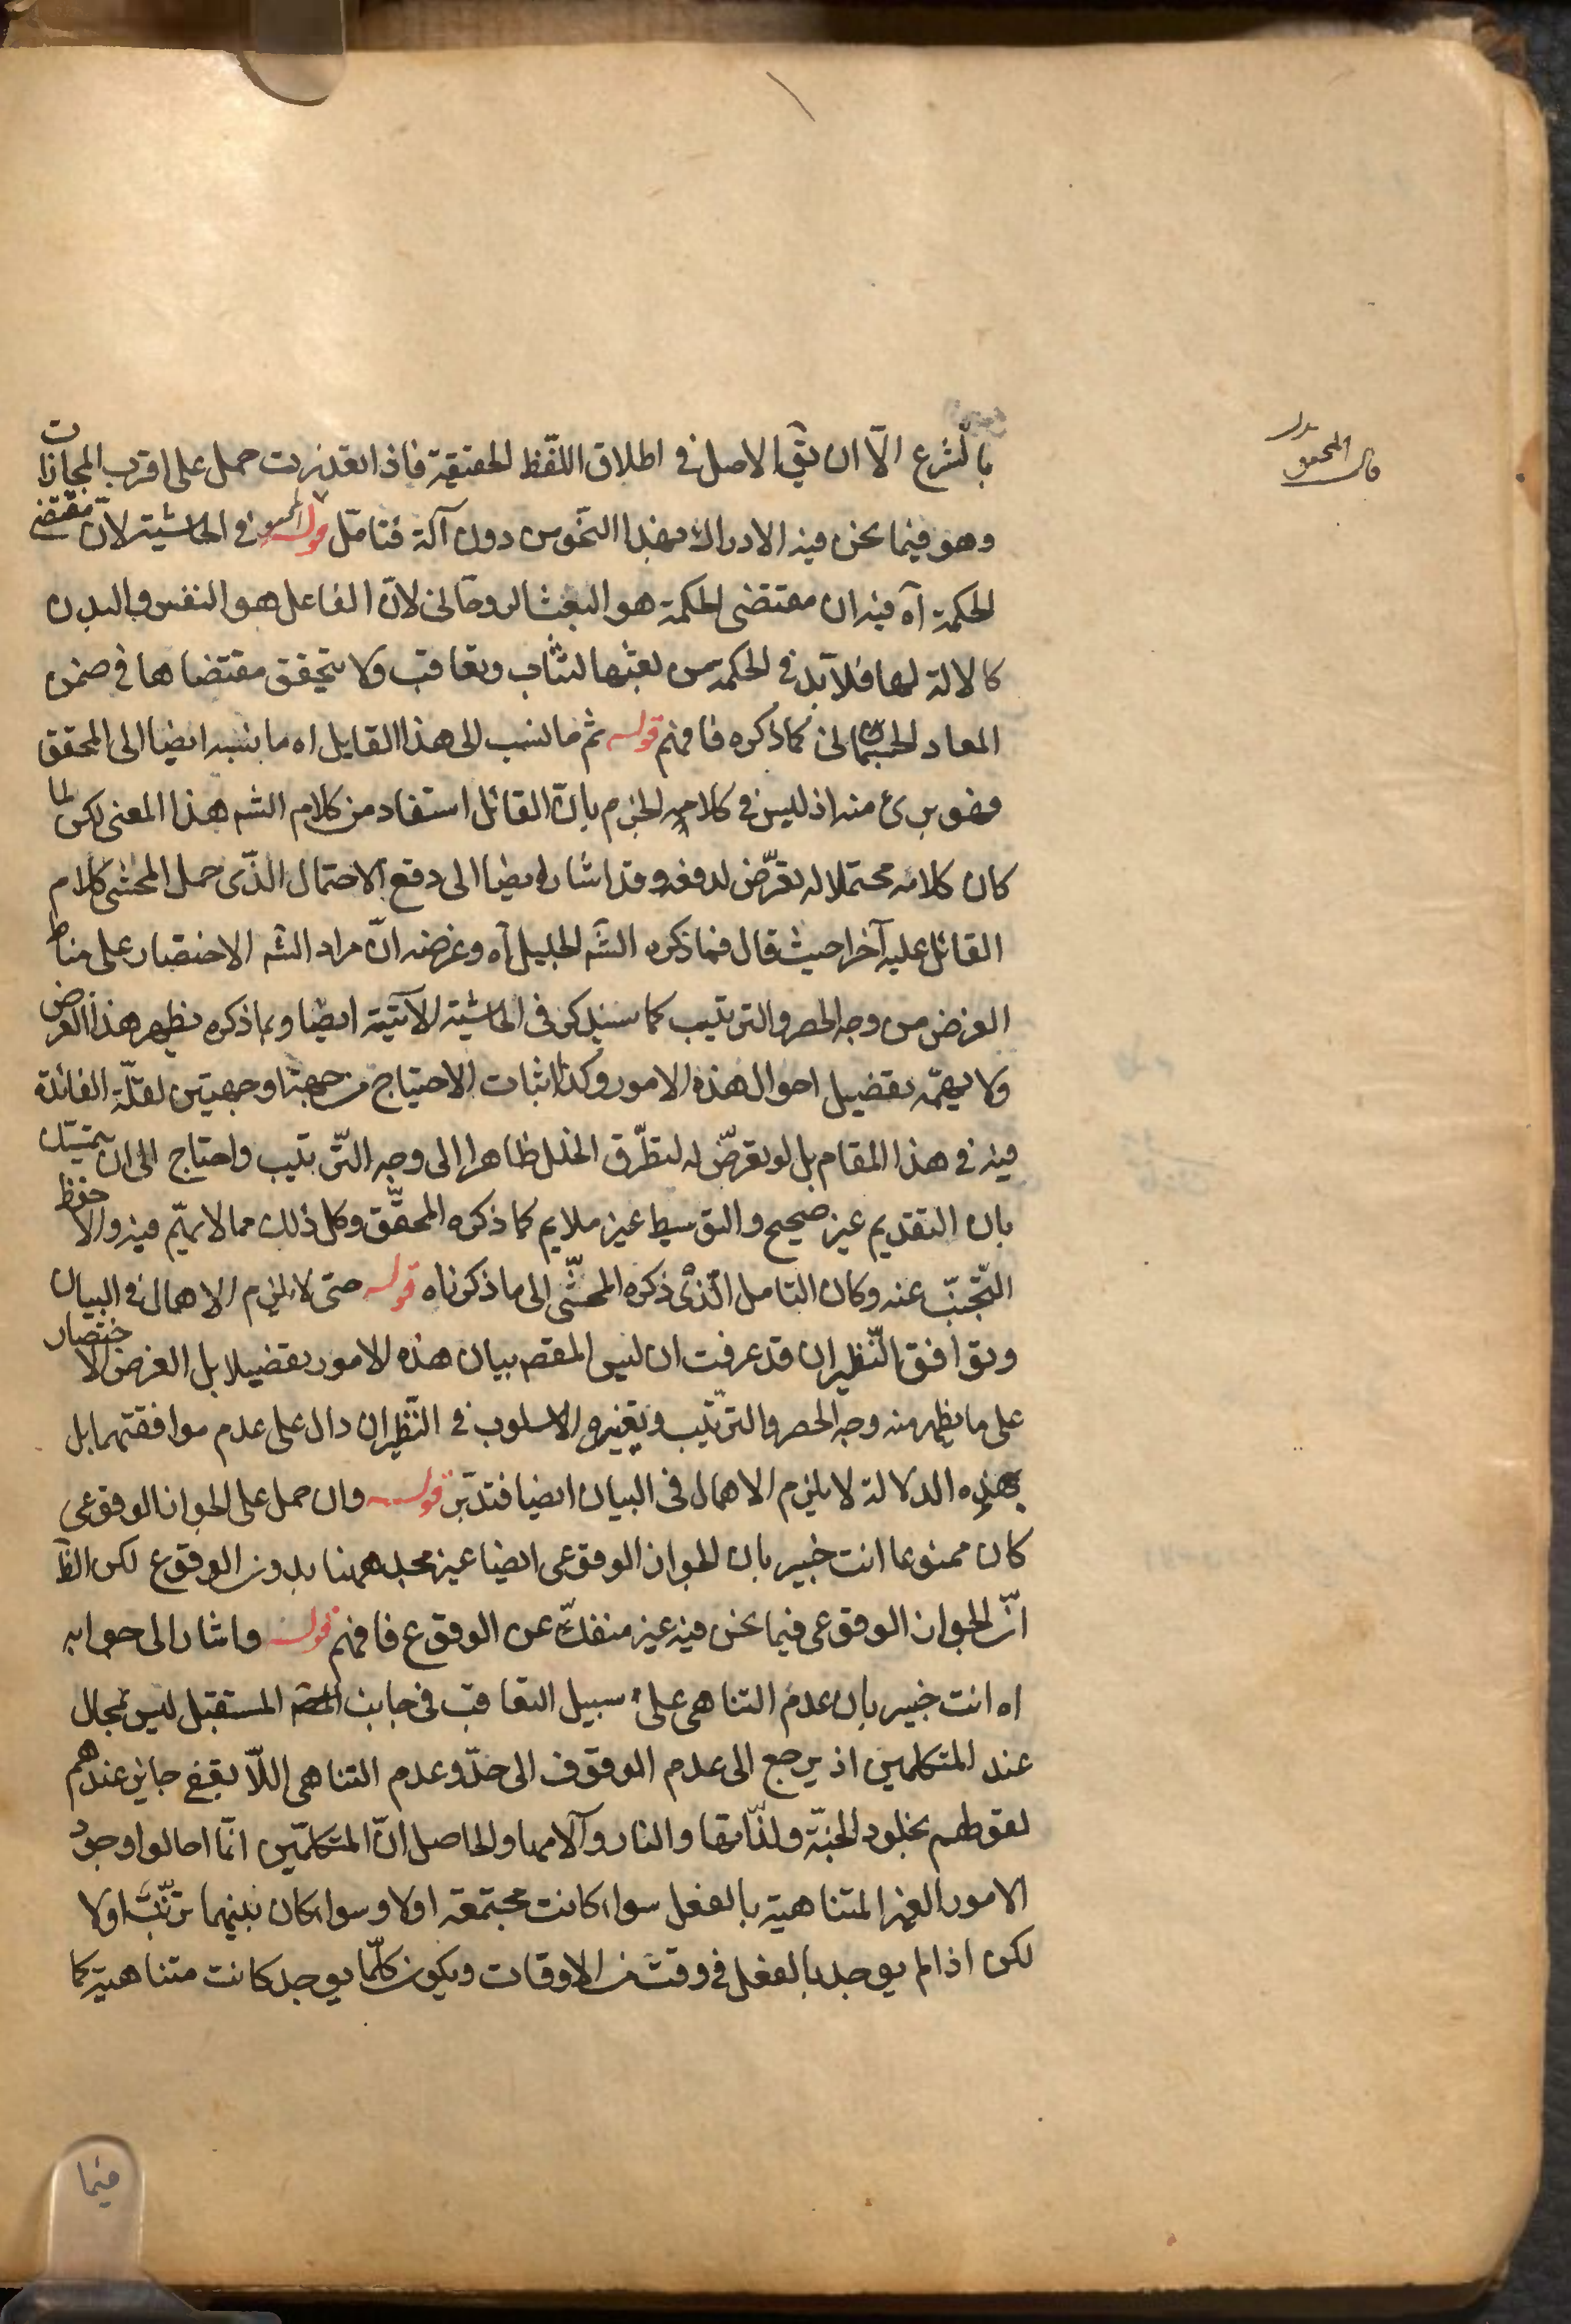 بالشرع الّا ان يقٓ الاصل فى اطلاق اللّفظ الحقيقة فاذا تعذرت حمل على اقرب المجازات
وهو فيما نحن فيه الادراك بهذا النّحو من دون آلة فتامّل قوله فى الحاشية لانّ مقتضى
الحكمة آه فيه ان مقتضى الحكمة هو البعث الروحانى لانّ الفاعل هو النفس والبدن
كالالة لها فلا بدّ فى الحكمة من بعثها لتثاب وتعاقب ولا يتحقق مقتضاها فى ضمن
المعاد الجسمانى كما ذكره فافهم قوله ثم ما نسب الى هذا القايل اه ما نسبه ايضا الى المحقق
فهو برئ منه اذ ليس فى كلامه الجزم بانّ القائل استفاد من كلام الشه هذا المعنى لكن لما
كان كلامه محتملا له تعرّض لدفعه وقد اشار ايضا الى دفع الاحتمال الذّى حمل المحشى كلام
القائل عليه آخرا حيث قال فما ذكره الشه الجليل آه وغرضه انّ مراد الشه الاختصار على مناط
الغرض من وجه الحصر والترتيب كما سنذكر فى الحاشية الآتية ايضا وبما ذكره يظهر هذا الغرض
ولا يهمّه تفصيل احوال هذه الامور وكذا اثبات الاحتياج من جهة او جهتين لقلّة الفائدة
فيه فى هذا المقام بل لو تعرّض له لتطرّق الخلل ظاهرا الى وجه التّرتيب واحتاج الى ان يتمسّك
بان التقديم غير صحيح والتوسيط غير ملايم كما ذكره المحقّق وكل ذلك مما لا يهمّ فيه والاحفظ
التّجنّب عنه وكان التامل الّذى ذكره المحشّى الى ما ذكرناه قوله حتى لا يلزم الاهمال فى البيان
وتوافق النّظيران قد عرفت ان ليس المقصه بيان هذه الامور تفصيلا بل الغرض الاختصار
على ما يظهر منه وجه الحصر والترتيب وتغيره الاسلوب فى النّظيران دال على عدم موافقتهما بل
بهذه الدلالة لا يلزم الاهمال فى البيان ايضا فتدبّر قوله وان حمل على الجواز الوقوعى
كان ممنوعا انت خبير بان الجواز الوقوعى ايضا غير مجد ههنا بدون الوقوع لكن الظٓ
انّ الجواز الوقوعى فيما نحن فيه غير منفكّ عن الوقوع فافهم قوله واشار الى جوابه
اه انت خبير بان عدم التناهى على سبيل التعاقب فى جانب المستقبل ليس بمحال
عند المتكلمين اذ يرجع الى عدم الوقوف الى حدّ وعدم التناهى اللّا يقفى جايز عندهم
لقولهم بخلود الجنّة ولذّاتها والنار وآلامها والحاصل انّ المتكلمّين انّما احالوا وجود
الامور الغير المتناهية بالفعل سواء كانت مجتمعة اولا وسواء كان بينهما ترتّب اولا
لكن اذا لم يوجد بالفعل فى وقت من الاوقات ويكون كلّما يوجد كانت متناهية كما
فيما
قال المحقق